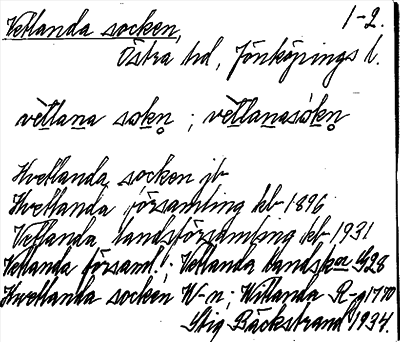 Vetlanda socken, 1-2.
Östra hd, Jönköpings l.
vètlana sokn ; vètlanasòkn
Hvetlanda socken jb
Hvetlanda församling kb 1896
Vetlanda landsförsamling kb 1931
Vetlanda församl.; Vetlanda landsken G28
Hwetlanda socken W-n; Witlanda R-g 1770
Stig Bäckstrand 1934.